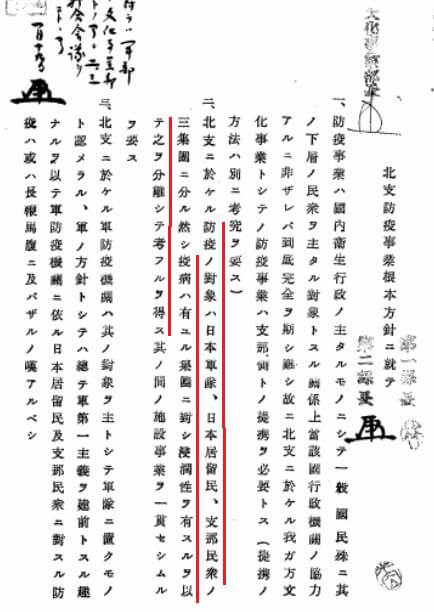 文化事業部長
第一課長
第二課長
北支防疫事業根本方針ニ就テ
一、防疫事業ハ國内衛生行政ノ主タルモノニシテ一般國民殊ニ其
ノ下層ノ民衆ヲ主タル對象トスル關係上當該國行政機關ノ協力
アルニ非ザレバ到底完全ヲ期シ難シ故ニ北支ニ於ケル我ガ方文
化事業トシテノ防疫事業ハ支那側トノ提携ヲ必要トス（提携ノ
方法ハ別ニ考究ヲ要ス）
二、北支ニ於ケル防疫ノ對象ハ日本軍隊、日本居留民、支那民衆ノ
三集團ニ分ル然シ疫病ハ有ユル集團ニ對シ浸潤性ヲ有スルヲ以
テ之ヲ分離シテ考フルヲ得ス其ノ間ノ施設事業ヲ一貫セシムル
ヲ要ス
三、北支ニ於ケル軍防疫機關ハ其ノ對象ヲ主トシテ軍隊ニ置クモノ
ト認メラル、軍ノ方針トシテハ總テ軍第一主義ヲ建前トスル趣
ナルヲ以テ軍防疫機關ニ依ル日本居留民及支那民衆ニ對スル防
疫ハ或ハ長鞭馬腹ニ及バザルノ嘆アルベシ